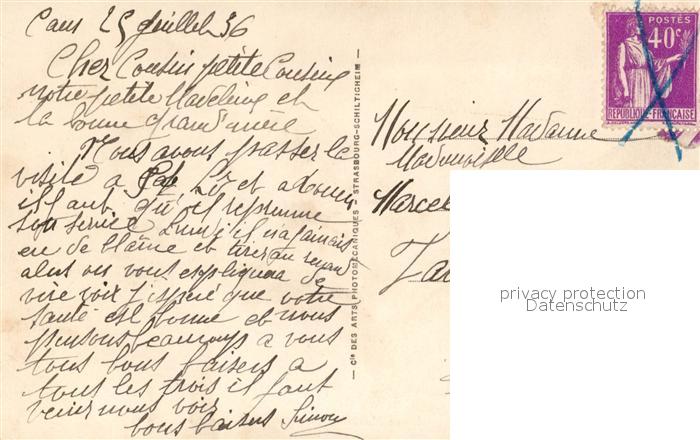 Caen 25 Juillet 36
Cher Cousin petite Cousine
notre petite Madeleine et
la bonne grand'mère
Nous avons passer la
visite a et a
il faut qu'il reprenne
son service Lundi il n'a jamais
eu de blâme et
alut on vous expliquera de
vive voix j'espère que votre
santé est bonne et nous
pensons beaucoup a vous
tous bons baisers a
tous les trois il faut
venir nous voir
bons baisers Simone
— Cie DES ARTS PHOTOMÉCANIQUES - STRASBOURG-SCHILTIGHEIM —
POSTES
40c
RÉPUBLIQUE-FRANÇAISE
Monsieur Madame
Mademoiselle
Marcel
privacy protection
Datenschutz